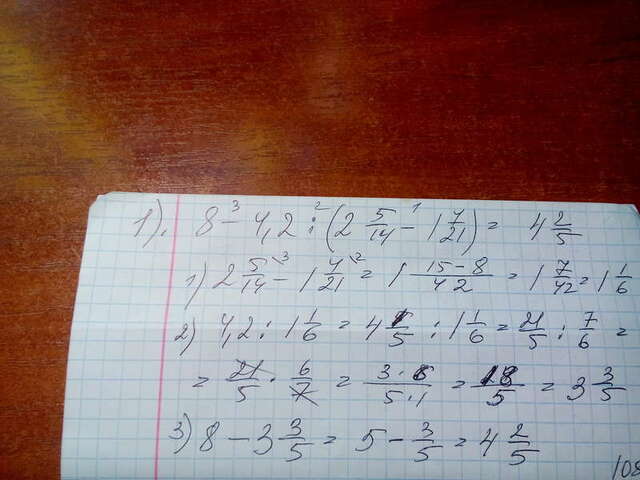 1). 8 - 4,2 : (2 5/14 - 1 4/21) = 4 2/5
1) 2 5/14 - 1 4/21 = 1 15-8/42 = 1 7/42 = 1 1/6
2) 4,2 : 1 1/6 = 4 1/5 : 1 1/6 = 21/5 : 7/6 =
= 21/5 · 6/7 = 3·6/5·1 = 18/5 = 3 3/5
3) 8 - 3 3/5 = 5 - 3/5 = 4 2/5
108